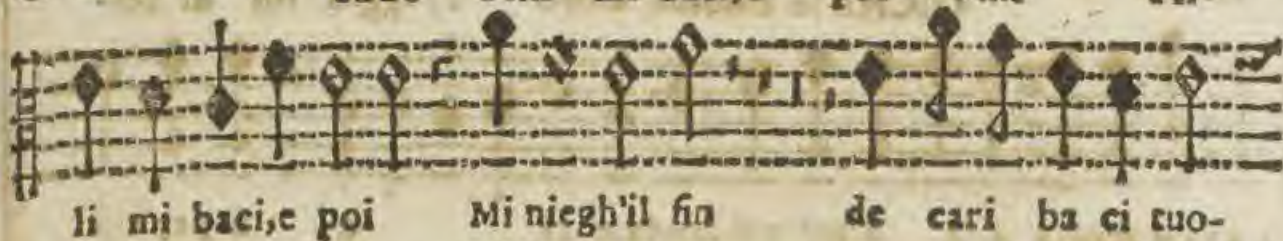 li mi baci,e poi Mi niegh'il fin de cari ba ci tuo-